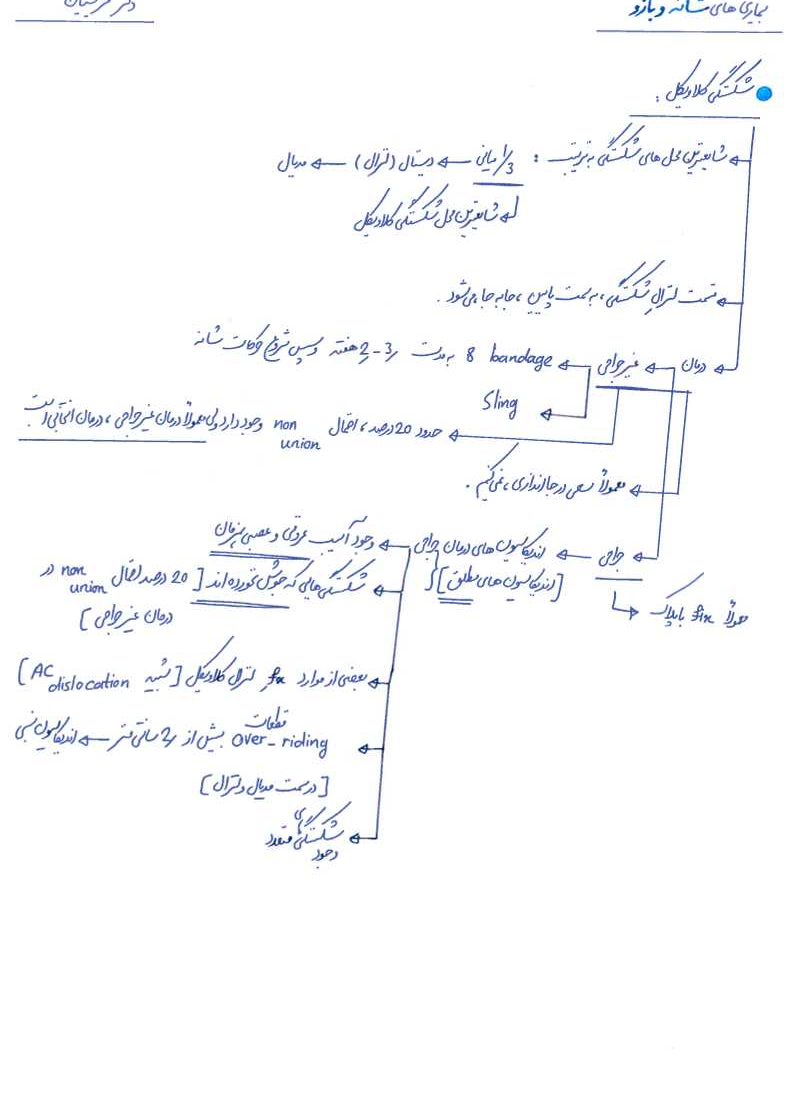 بیماری های شانه و بازو
دکتر
شکستگی کلاویکل :
شایعترین محل های شکستگی به ترتیب : 1/3 میانی ← دیستال (لترال) ← مدیال
شایعترین محل شکستگی کلاویکل
قسمت لترال شکستگی، به سمت پایین، جابه جا می شود.
درمان ← غیر جراحی ← 8 bandage به مدت 3-2 هفته و سپس شروع حرکات شانه
Sling
حدود 20 درصد، احتمال non union وجود دارد ولی معمولاً درمان غیر جراحی، درمان انتخابی است
معمولاً سعی در جااندازی، نمی کنیم.
جراحی ← اندیکاسیون های درمان جراحی ← وجود آسیب عروقی و عصبی همزمان
[اندیکاسیون های مطلق]
معمولاً fix با پلاک
شکستگی هایی که جوش نخورده اند [20 درصد احتمال non union در
درمان غیر جراحی]
بعضی از موارد fx لترال کلاویکل [شبیه AC dislocation]
over-riding قطعات بیش از 2 سانتی متر ← اندیکاسیون نسبی
[در سمت مدیال و لترال]
وجود شکستگی های متعدد